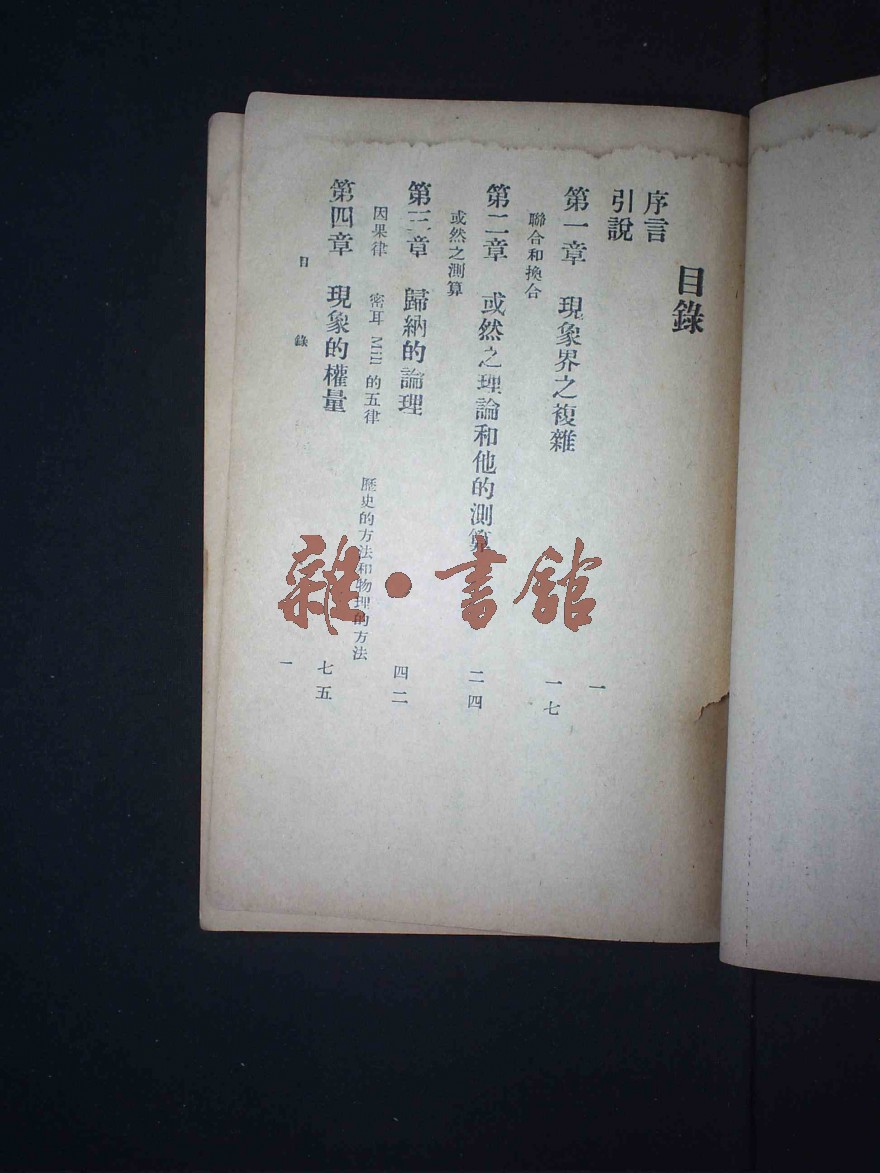 目錄
序言
引說 一
第一章 現象界之複雜 一七
聯合和換合
第二章 或然之理論和他的測算 二四
或然之測算
第三章 歸納的論理 四二
因果律 密耳 Mill 的五律 歷史的方法和物理的方法
第四章 現象的權量 七五
目 錄 一
雜·書館